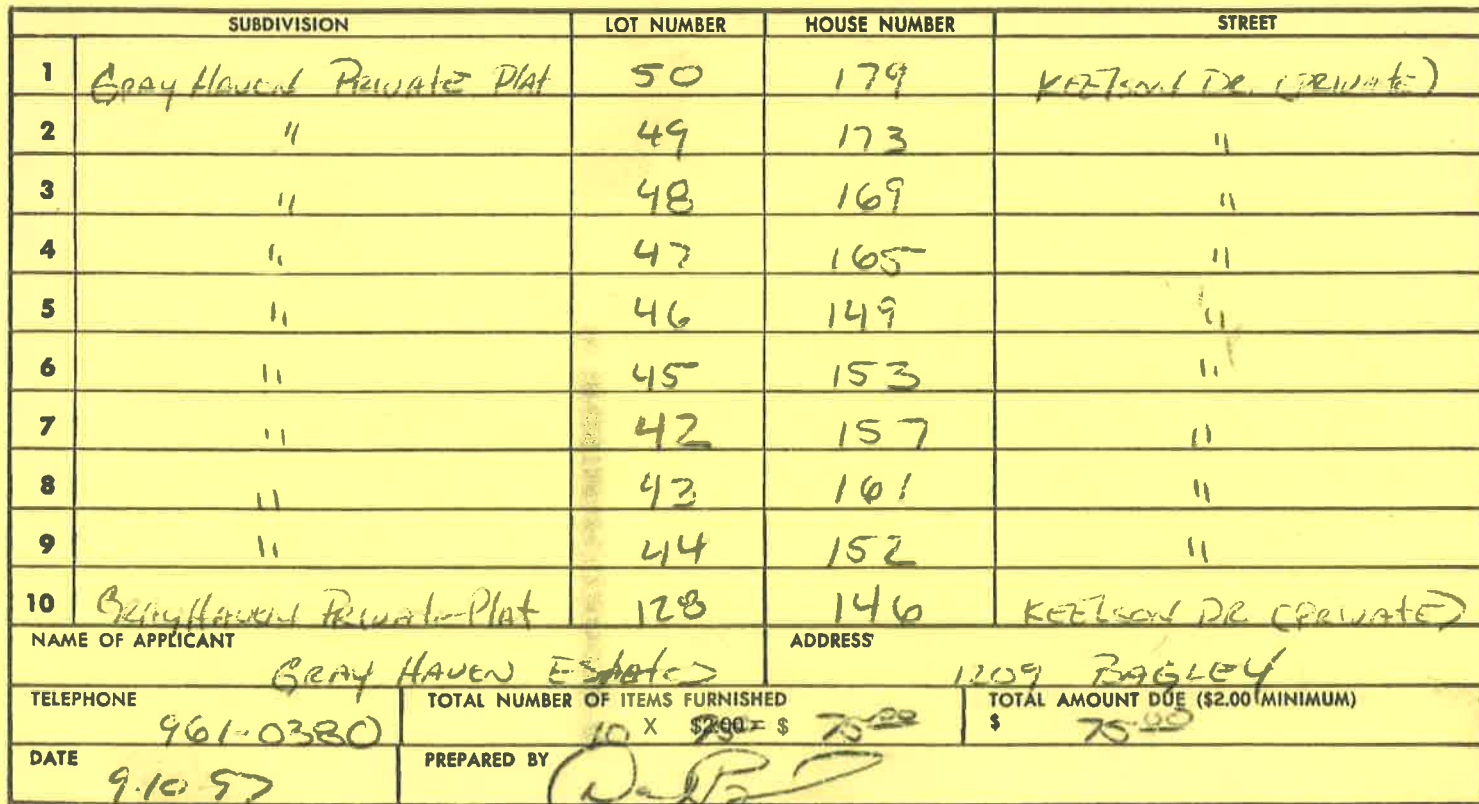 SUBDIVISION LOT NUMBER HOUSE NUMBER STREET
1 Gray Haven Private Plat 50 179 KEELSON DR. (PRIVATE)
2 " 49 173 "
3 " 48 169 "
4 " 47 165 "
5 " 46 149 "
6 " 45 153 "
7 " 42 157 "
8 " 43 161 "
9 " 44 152 "
10 GrayHaven Private Plat 128 146 KEELSON DR (PRIVATE)
NAME OF APPLICANT ADDRESS
GRAY HAVEN Estates 1209 BAGLEY
TELEPHONE TOTAL NUMBER OF ITEMS FURNISHED TOTAL AMOUNT DUE ($2.00 MINIMUM)
961-0380 10 X $2.00 = $ 75.00 $ 75.00
DATE PREPARED BY
9.10.97